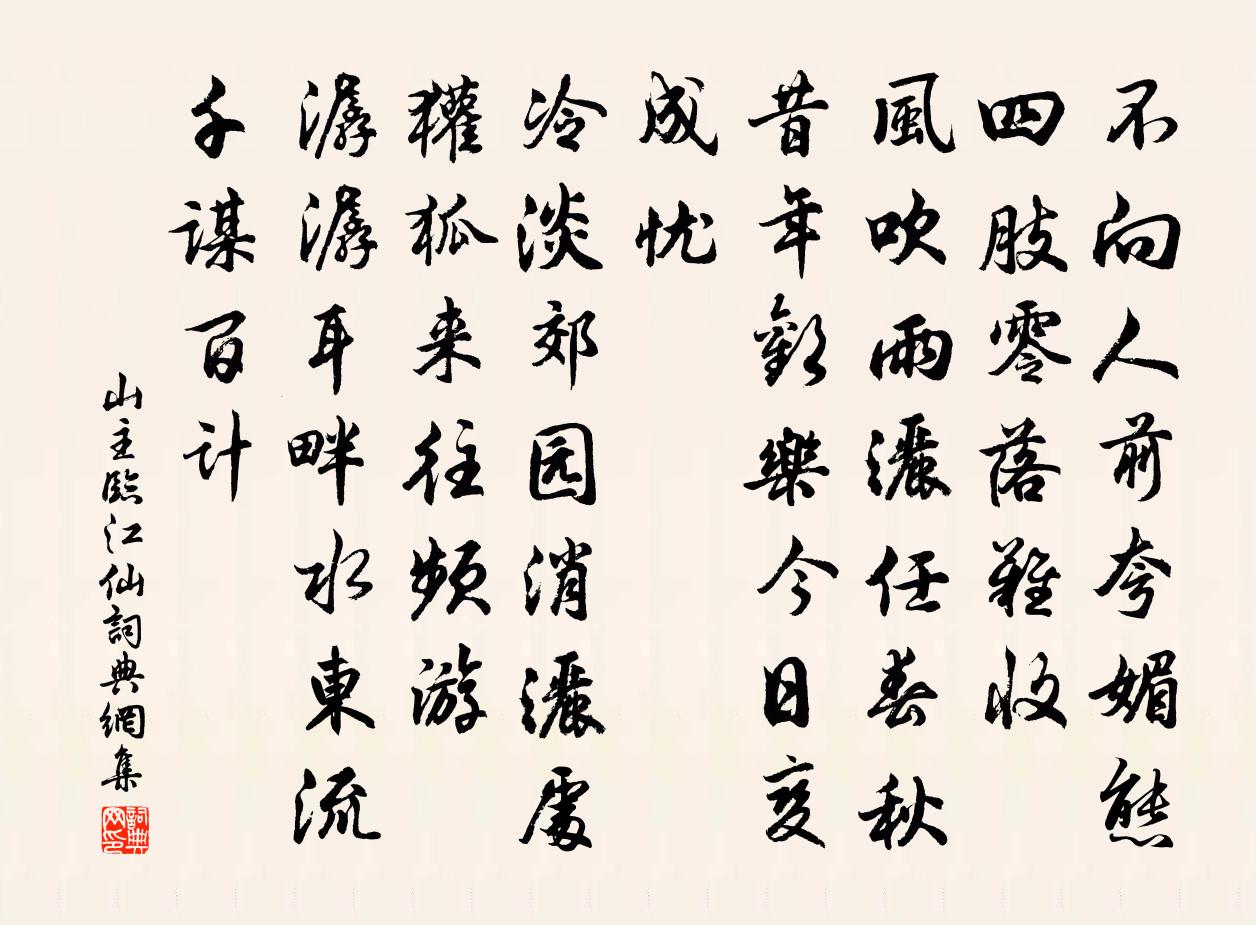 不向人前夸媚態
四肢零落難收
風吹雨灑任春秋
昔年歡樂今日变
成忧
冷淡郊园消灑處
獾狐来往頻游
潺潺耳畔水東流
千謀百计
山主臨江仙詞典網集
詞典网印